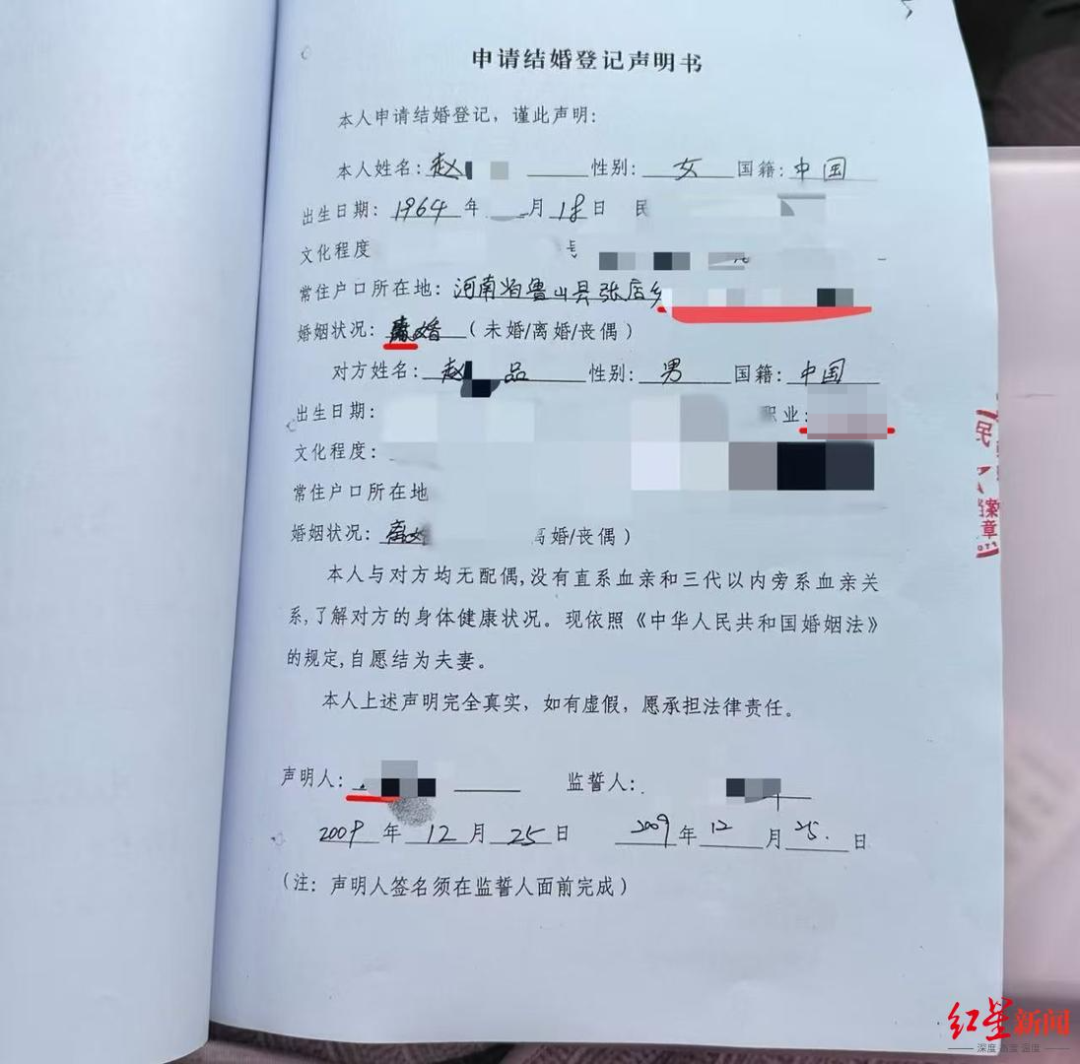 申请结婚登记声明书
本人申请结婚登记，谨此声明：
本人姓名：赵 性别：女 国籍：中国
出生日期：1964年 月18日 民
文化程度
常住户口所在地：河南省鲁山县张店乡
婚姻状况：离婚（未婚/离婚/丧偶）
对方姓名：赵 品 性别：男 国籍：中国
出生日期： 职业：
文化程度：
常住户口所在地
婚姻状况：离婚 离婚/丧偶）
本人与对方均无配偶,没有直系血亲和三代以内旁系血亲关
系,了解对方的身体健康状况。现依照《中华人民共和国婚姻法》
的规定,自愿结为夫妻。
本人上述声明完全真实，如有虚假，愿承担法律责任。
声明人： 监誓人：
2009年12月25日 2009年12月25日
（注：声明人签名须在监誓人面前完成）
民
档案
章
红星新闻
深度 态度 温度